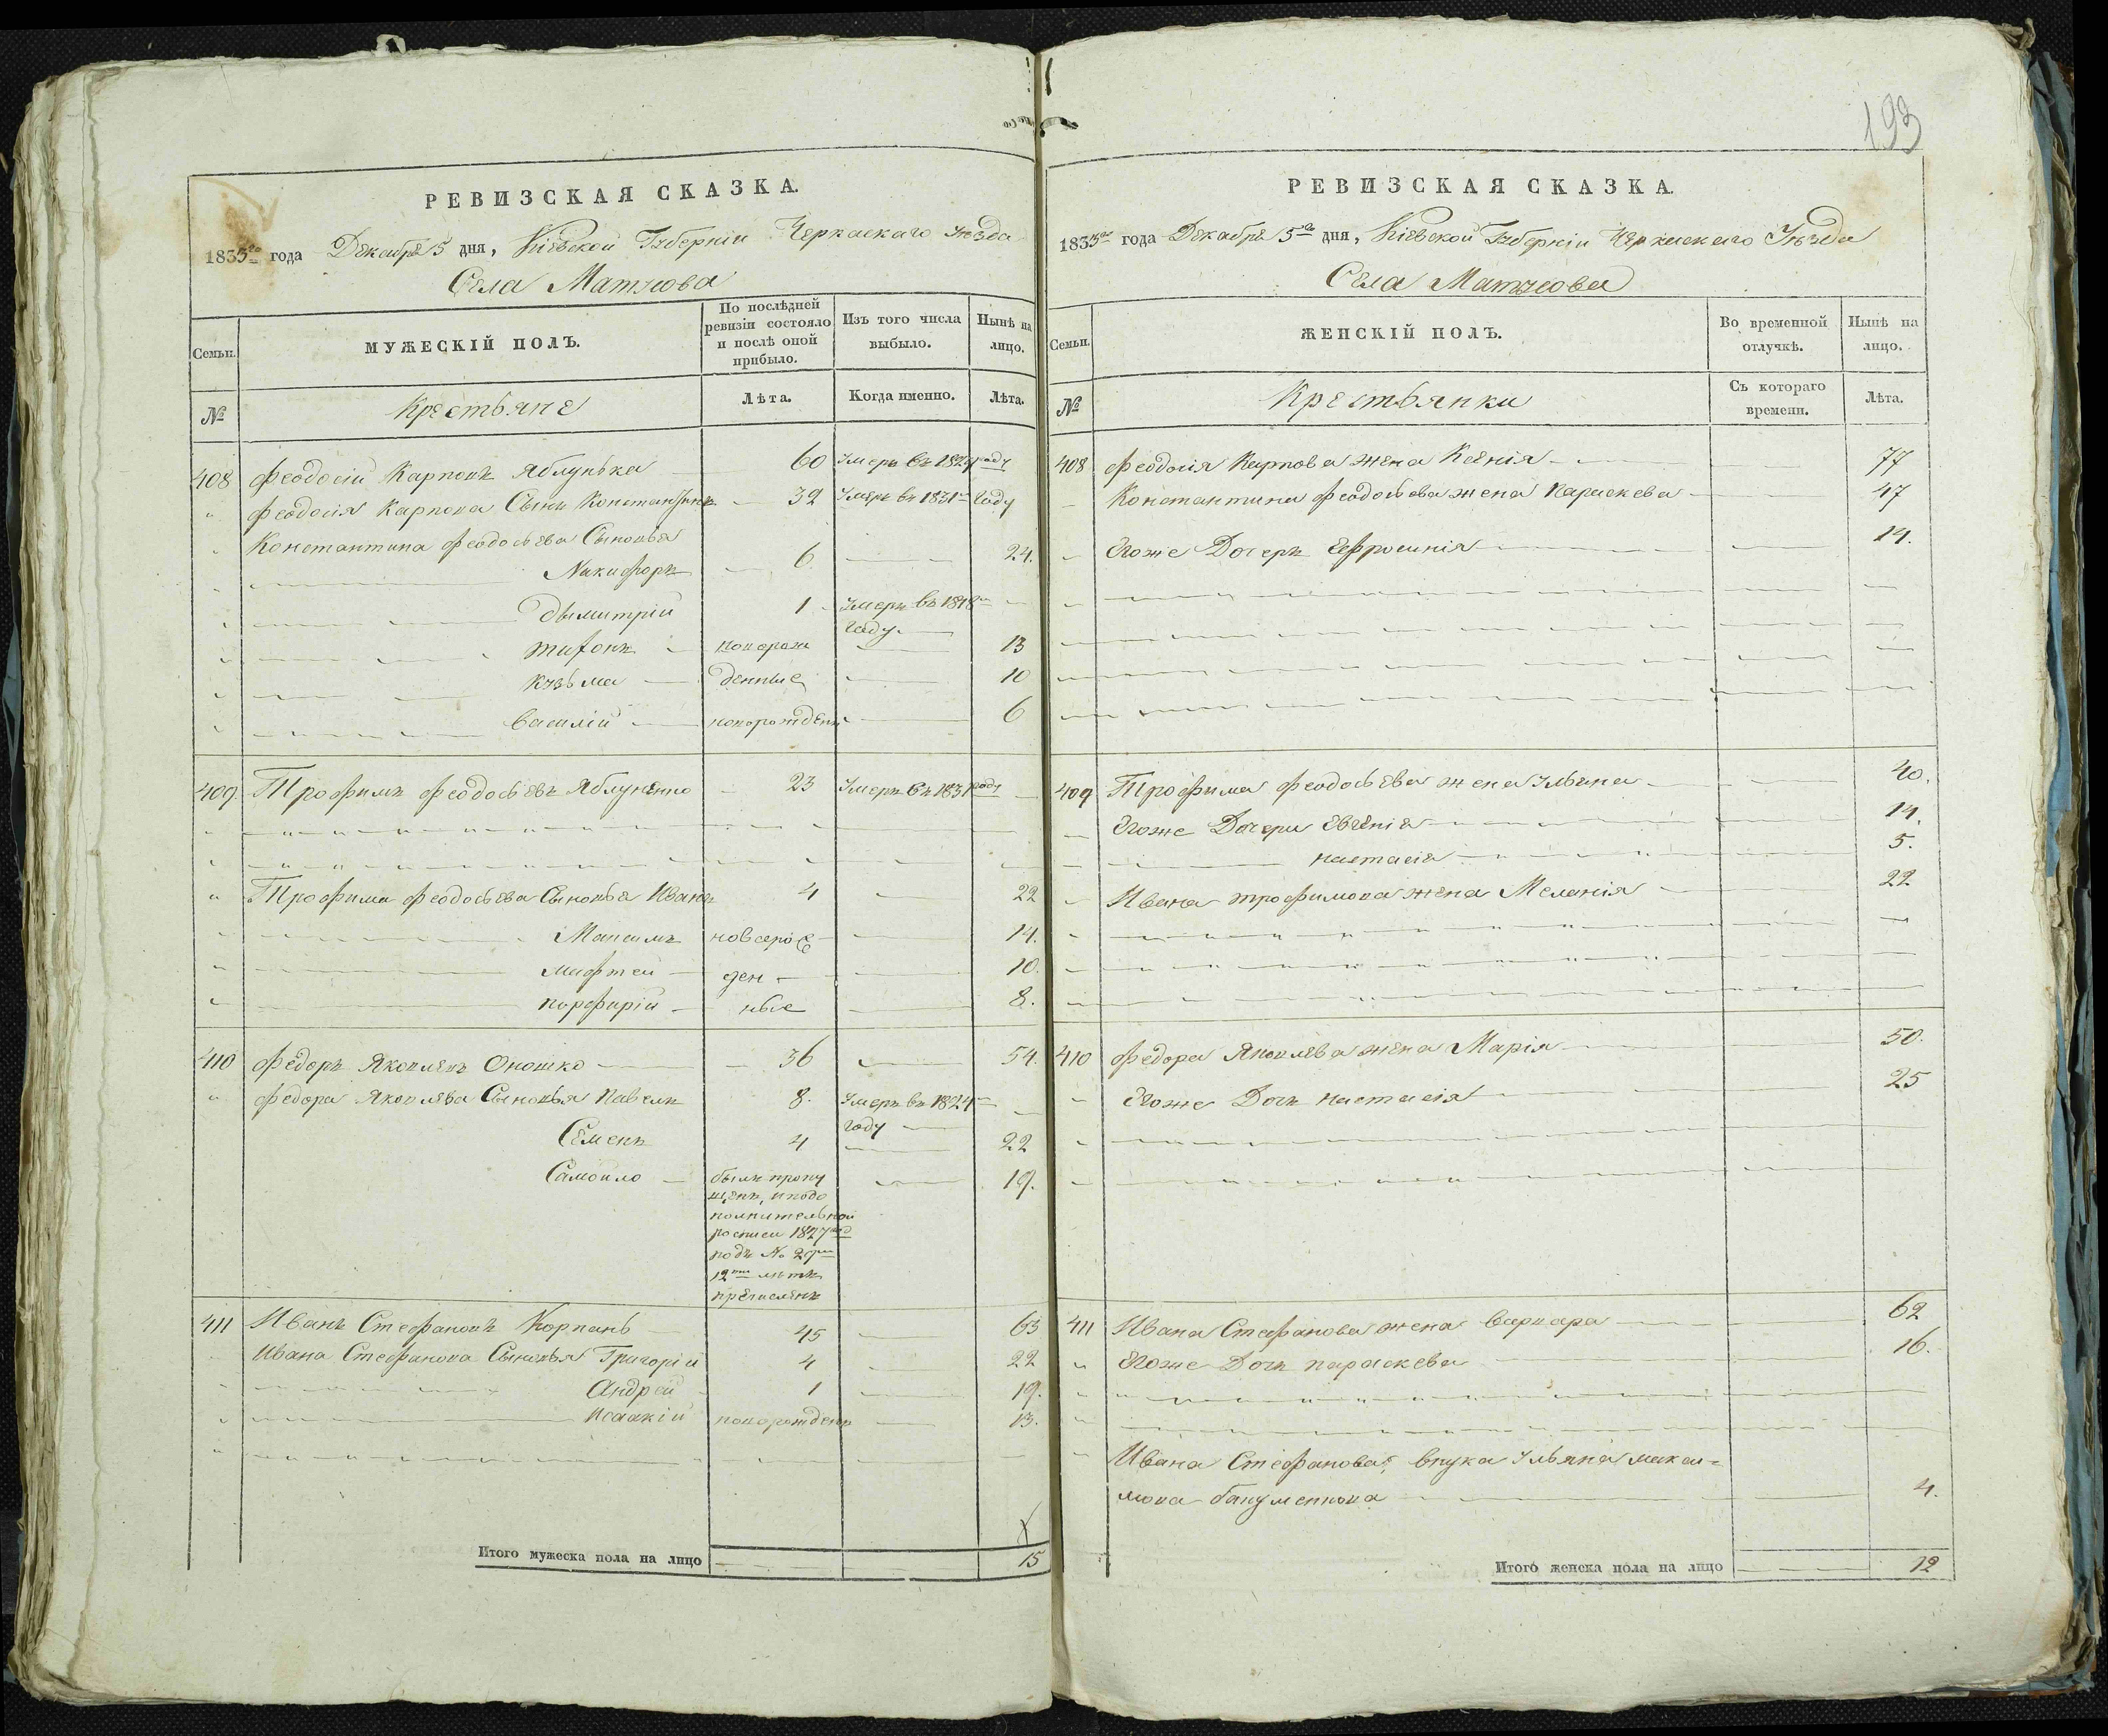 193
РЕВИЗСКАЯ СКАЗКА.
1835го года Декабря 5 дня, Кіевской Губерніи Черкаскаго Уезда
Села Матусова
Семьи.
МУЖЕСКІЙ ПОЛЪ.
По послѣдней ревизіи состояло и послѣ оной прибыло.
Изъ того числа выбыло.
Нынѣ на лицо.
№
Крестьяне
Лѣта.
Когда именно.
Лѣта.
408 Феодосій Карповъ Яблунька 60 Умеръ въ году
Феодосія Карпова Сынъ Константинъ 32 Умеръ въ 1831м году
Константина Феодосьева Сыновья
Никифоръ 6 24.
Дымитрій 1 Умеръ въ 1818м году
Тифонъ новорож 13
Кузьма денные 10
Василій новорожденъ 6
409. Трофимъ Феодосьевъ Яблуненко 23 Умеръ въ 1831 году
Трофима Феодосьева Сыновья Иванъ 4 22
Максимъ 14.
Мифтей ден 10.
порфирій ные 8.
410 Федоръ Яковлевъ Оношко 36 54.
Федора Яковлева Сыновья Павелъ 8. Умеръ въ 1824м году
Семенъ 4 22
Самойло былъ пропу 19.
щенъ, и подо
полнительной
росписи 1827
подъ № 29
12 лѣтъ
пречисленъ
411 Иванъ Стефановъ Корпань 45 63
Ивана Стефанова Сыновья Григорій 4 22
Андрей 1 19.
Исаакій новорожденъ 13.
Итого мужеска пола на лицо 15
РЕВИЗСКАЯ СКАЗКА.
1835го года Декабря 5го дня, Кіевской Губерніи Черкаскаго Уезда
Села Матусова
Семьи.
ЖЕНСКІЙ ПОЛЪ.
Во временной отлучкѣ.
Нынѣ на лицо.
№
Крестьянки
Съ котораго времени.
Лѣта.
408 Феодосія Карпова жена Ксенія 77
Константина Феодосьева жена Параскева 47
Егоже Дочеръ Ефросинія 14.
409 Трофима Феодосьева жена Ульяна 40.
Егоже Дочери Евгенія 14.
настасія 5.
Ивана трофимова жена Меланія 22
410 Федора Яковлева жена Марія 50.
Егоже Дочь настасія 25
411 Ивана Стефанова жена Варвара 62
Егоже Дочь параскева 16.
Ивана Стефанова внука Ульяна макси=
мова 4.
Итого женска пола на лицо 12